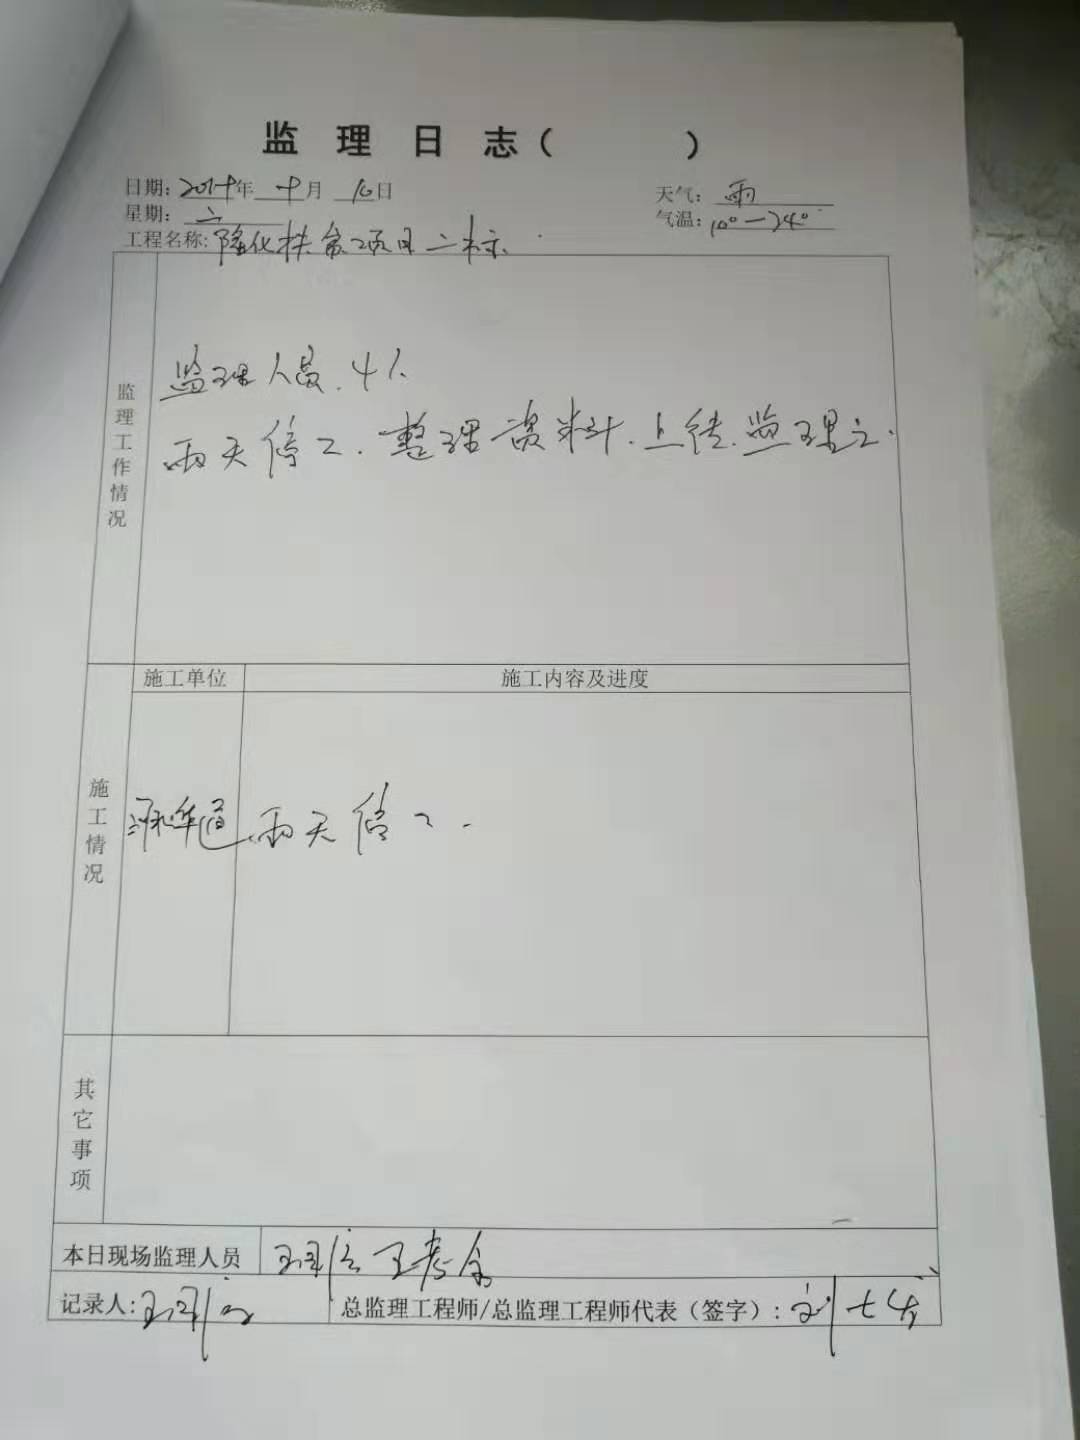 监 理 日 志（ ）
日期： 年 十 月 10 日 天气： 雨
星期： 六 气温： 10°—24°
工程名称： 隆化扶贫项目二标
监理工作情况
监理人员、4人
雨天停工．整理资料．上传．监理
施工单位 施工内容及进度
施工情况
雨天停工．
其它事项
本日现场监理人员 王
记录人：
总监理工程师/总监理工程师代表（签字）： 刘